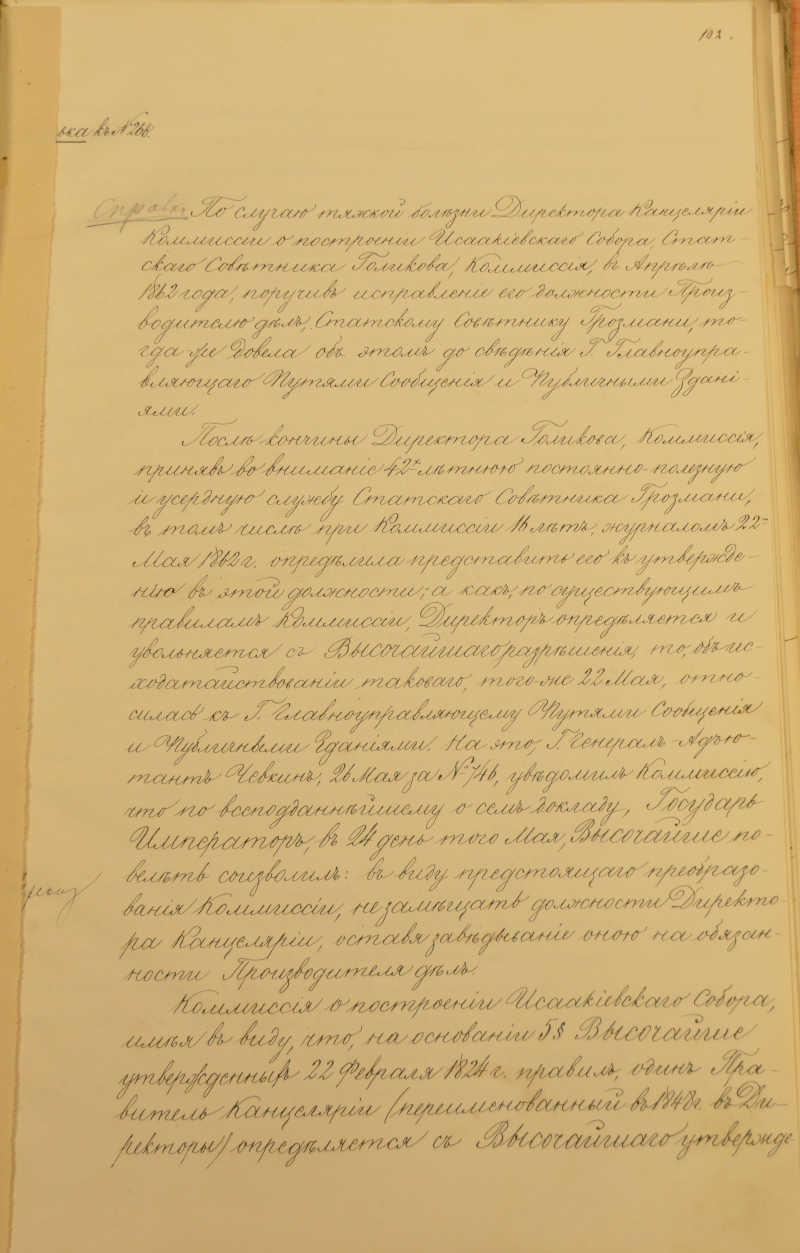 102.
вка къ № 266.
Справк. По случаю тяжкой болѣзни Директора Канцеляріи
Коммиссіи о построеніи Исаакіевскаго Собора, Стат-
скаго Совѣтника Голикова, Коммиссія, въ Апрѣлѣ
1862 года, поручивъ исправленіе его должности Произ-
водителю дѣлъ, Статскому Совѣтнику Грозмани, то-
гда же довела объ этомъ до свѣдѣнія Г. Главноупра-
вляющаго Путями Сообщенія и Публичными Здані-
ями.
Послѣ кончины Директора Голикова, Коммиссія,
принявъ во вниманіе 42х лѣтнюю постоянно-полезную
и усердную службу Статскаго Совѣтника Грозмани,
въ томъ числѣ при Коммиссіи 16 лѣтъ, журналомъ 22-
Мая 1862 г. опредѣлила представить его къ утвержде-
нію въ этой должности; а какъ, по существующимъ
правиламъ Коммиссіи, Директоръ опредѣляется и
увольняется съ Высочайшаго разрѣшенія, то, объ ис-
ходатайствованіи таковаго, того-же 22 Мая, отно-
силась къ Г. Главноуправляющему Путями Сообщенія
и Публичными Зданіями. На это, Г. Генералъ-Адъю-
тантъ Чевкинъ, 26 Мая за № 746, увѣдомилъ Коммиссію,
что по всеподданнѣйшему о семъ докладу, Государь
Императоръ, въ 24 день того Мая, Высочайше по-
велѣть соизволилъ: въ виду предстоящаго преобразо-
ванія Коммиссіи, не замѣщать должности Директо-
ра Канцеляріи, оставя завѣдываніе оною на обязан-
ности Производителя дѣлъ.
Коммиссія о построеніи Исаакіевскаго Собора,
имѣя въ виду, что, на основаніи 5 § Высочайше
утвержденныхъ 22 Февраля 1824 г. правилъ, одинъ Пра-
витель Канцеляріи (переименованный въ 1848 г. въ Ди-
ректоры) опредѣляется съ Высочайшаго утвержде